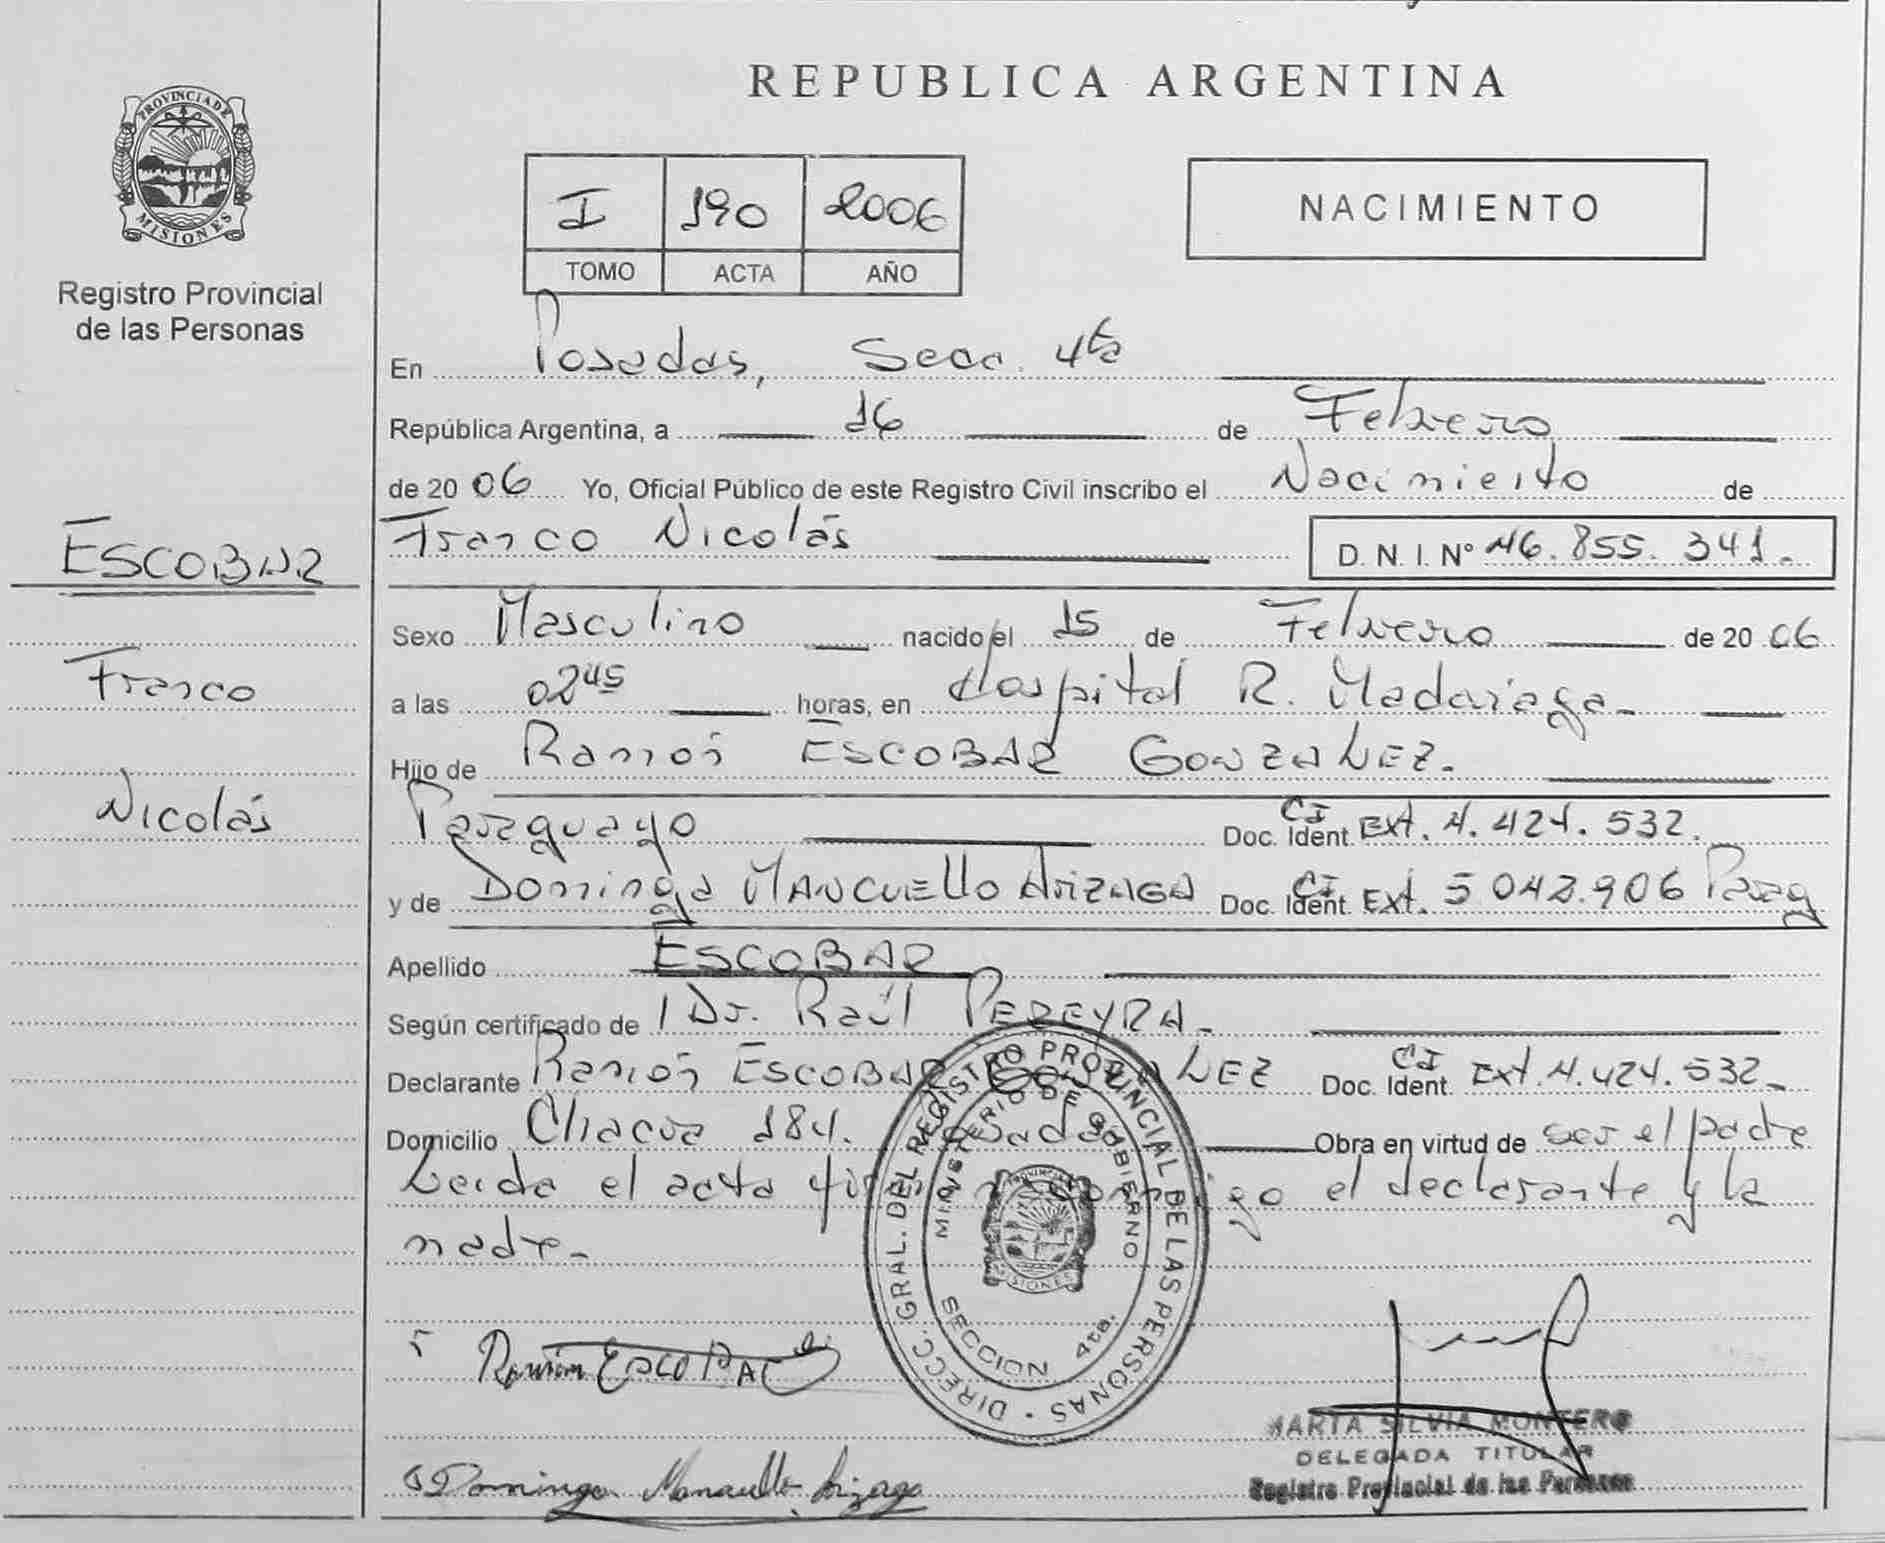 REPUBLICA ARGENTINA
PROVINCIA DE
MISIONES
Registro Provincial
de las Personas
I 190 2006
TOMO ACTA AÑO
NACIMIENTO
En Posadas, Secc. 4ta
República Argentina, a 16 de Febrero
de 20 06 Yo, Oficial Público de este Registro Civil inscribo el Nacimiento de
ESCOBAR
Franco
Nicolás
Franco Nicolás D. N. I. Nº 46.855.341.-
Sexo Masculino nacido el 15 de Febrero de 20 06
a las 02 45 horas, en Hospital R. Madariaga.-
Hijo de Ramón ESCOBAR GONZALEZ.
Paraguayo Doc. Ident. CI Ext. 4.424.532.
y de Dominga MANCUELLO ARIZAGA Doc. Ident. CI Ext. 5 042.906 Parag
Apellido ESCOBAR
Según certificado de l Dr. Raúl PEREYRA.-
Declarante Ramón ESCOBAR GONZALEZ Doc. Ident. CI Ext. 4.424.532.-
Domicilio Chacra 184. Posadas Obra en virtud de ser el padre
Leida el acta firman conmigo el declarante y la
madre.-
DIRECC. GRAL. DEL REGISTRO PROVINCIAL DE LAS PERSONAS
MINISTERIO DE GOBIERNO
MISIONES
SECCION 4ta.
Ramón ESCOBAR
Dominga Mancuello Arizaga
MARTA SILVIA MONTERO
DELEGADA TITULAR
Registro Provincial de las Personas